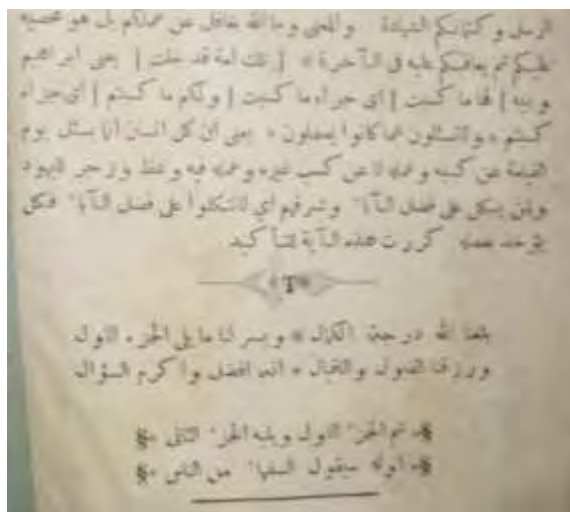 الرسل وكتمانكم الشهادة والمعنى وما الله بغافل عن عملكم بل هو محصيه
عليكم ثم يعاقبكم عليه فى الآخرة * [ تلك امة قد خلت ] يعنى ابراهيم
وبنيه [ لها ما كسبت ] اى جزاء ما كسبت [ ولكم ما كسبتم ] اى جزاء
كسبتم * ولا تسئلون عما كانوا يعملون * يعنى ان كل انسان انما يسئل يوم
القيمة عن كسبه وعمله لا عن كسب غيره وعمله فيه وعظ وزجر لليهود
ولمن يتكل على فضل الآباء وشرفهم اى لا تتكلوا على فضل الآباء فكل
يؤخذ بعمله كررت هذه الآية للتأكيد
بلغنا الله درجة الكمال * ويسر لنا ما يلى الجزء الاول
ورزقنا القبول والاقبال * انه افضل واكرم السؤال
تم الجزء الاول ويليه الجزء الثانى
اوله سيقول السفهاء من الناس